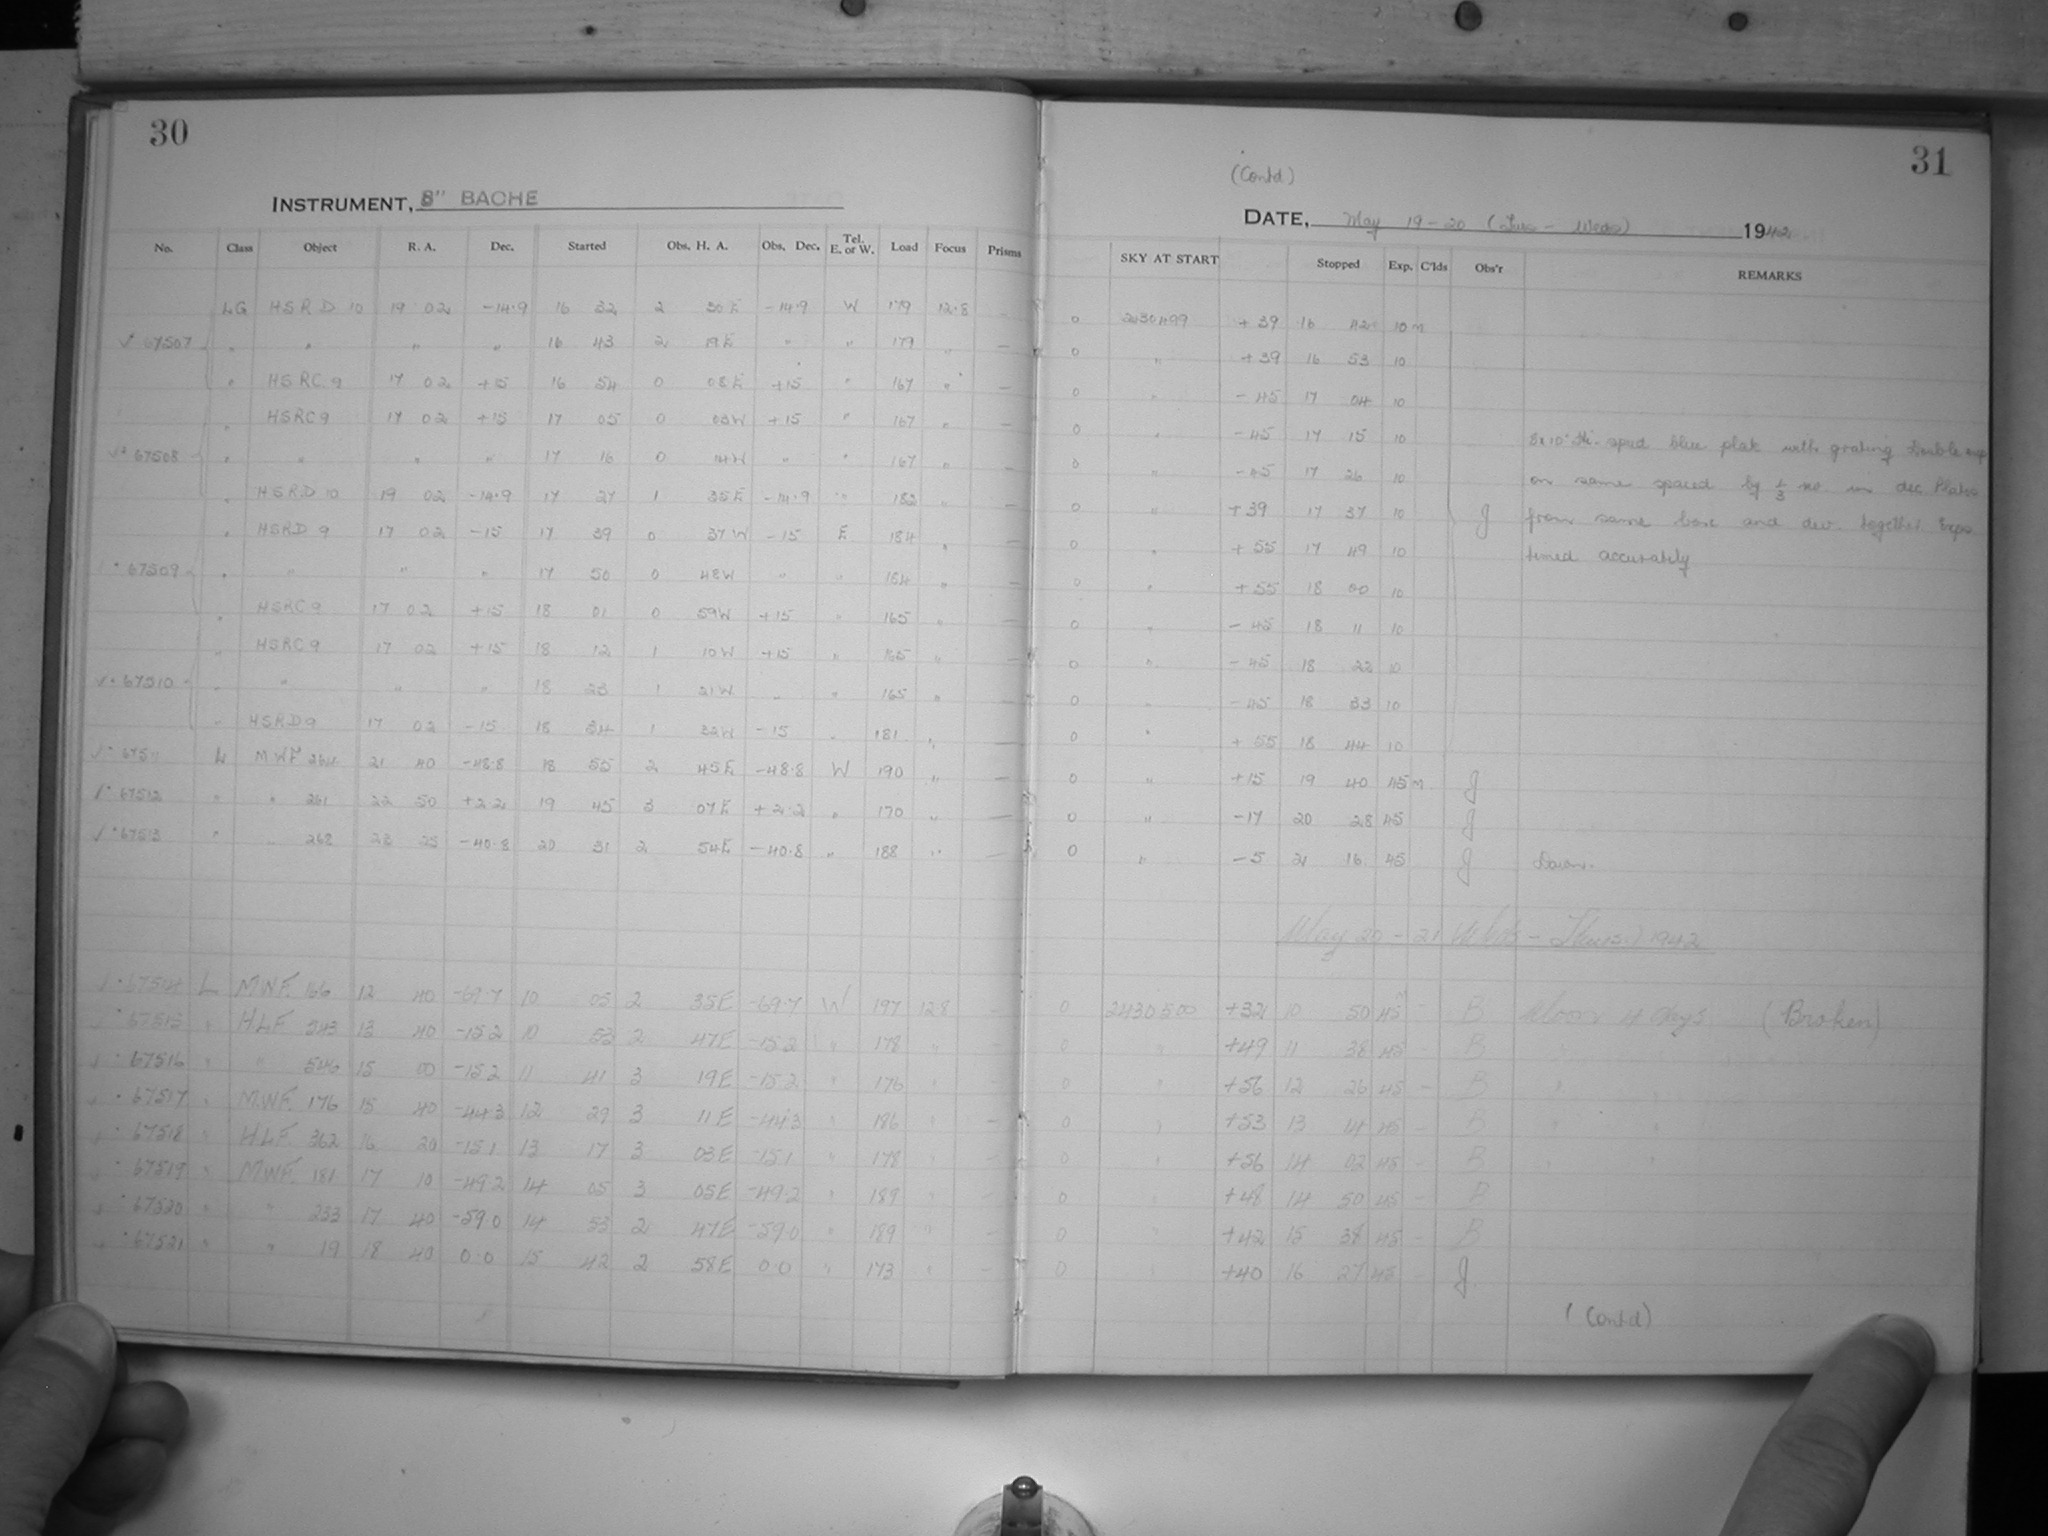 30
INSTRUMENT, 8" BACHE
No. Class Object R. A. Dec. Started Obs. H. A. Obs. Dec. Tel. E. or W. Load Focus Prisms
LG HSRD 10 19 02 -14.9 16 32 2 30E -14.9 W 179 12.8
67507 " " " " 16 43 2 19E " " 179 " —
" HSRC 9 17 02 +15 16 54 0 08E +15 " 167 " —
" HSRC9 17 02 +15 17 05 0 03W +15 " 167 " —
67508 " " " " 17 16 0 14W " " 167 " —
" HSRD 10 19 02 -14.9 17 27 1 35E -14.9 " 182 " —
" HSRD 9 17 02 -15 17 39 0 37W -15 E 184 " —
67509 " " " " 17 50 0 48W " " 184 " —
" HSRC 9 17 02 +15 18 01 0 59W +15 " 165 " —
" HSRC 9 17 02 +15 18 12 1 10W +15 " 165 " —
67510 " " " " 18 23 1 21W " " 165 " —
" HSRD9 17 02 -15 18 34 1 32W -15 " 181 " —
67511 L MWF 264 21 40 -48.8 18 55 2 45E -48.8 W 190 " —
67512 " " 261 22 50 +2.2 19 45 3 07E +2.2 " 170 " —
67513 " " 268 23 25 -40.8 20 31 2 54E -40.8 " 188 " —
67514 L MWF. 166 12 40 -69.7 10 05 2 35E -69.7 W 197 12.8
67515 " HLF 543 13 40 -15.2 10 53 2 47E -15.2 " 178 " —
67516 " " 546 15 00 -15.2 11 41 3 19E -15.2 " 176 " —
67517 " MWF. 176 15 40 -44.3 12 29 3 11E -44.3 " 186 " —
67518 " HLF 362 16 20 -15.1 13 17 3 03E -15.1 " 178 " —
67519 " MWF. 181 17 10 -49.2 14 05 3 05E -49.2 " 189 " —
67520 " " 233 17 40 -59.0 14 53 2 47E -59.0 " 189 " —
67521 " " 19 18 40 0.0 15 42 2 58E 0.0 " 173 " —
31
(Contd)
DATE, May 19-20 (Tues - Weds) 1942
SKY AT START Stopped Exp. C'lds Obs'r REMARKS
0 2430499 +39 16 42 10m
0 " +39 16 53 10
0 " -45 17 04 10
0 " -45 17 15 10 8x10" Hi-speed blue plate with grating Double exp
0 " -45 17 26 10 on same spaced by 1/3 in dec Plates
0 " +39 17 37 10 J from same box and dev. together Exps
0 " +55 17 49 10 timed accurately
0 " +55 18 00 10
0 " -45 18 11 10
0 " -45 18 22 10
0 " -45 18 33 10
0 " +55 18 44 10
0 " +15 19 40 45m J
0 " -17 20 28 45 J
0 " -5 21 16 45 J Dawn.
May 20 - 21 Weds - Thurs.) 1942
0 2430500 +32 10 50 45 - B Moon 4 days (Broken)
0 " +49 11 38 45 - B "
0 " +56 12 26 45 - B "
0 " +53 13 14 45 - B " "
0 " +56 14 02 45 - B " "
0 " +48 14 50 45 - B
0 " +42 15 38 45 - B
0 " +40 16 27 45 - J.
(Contd)